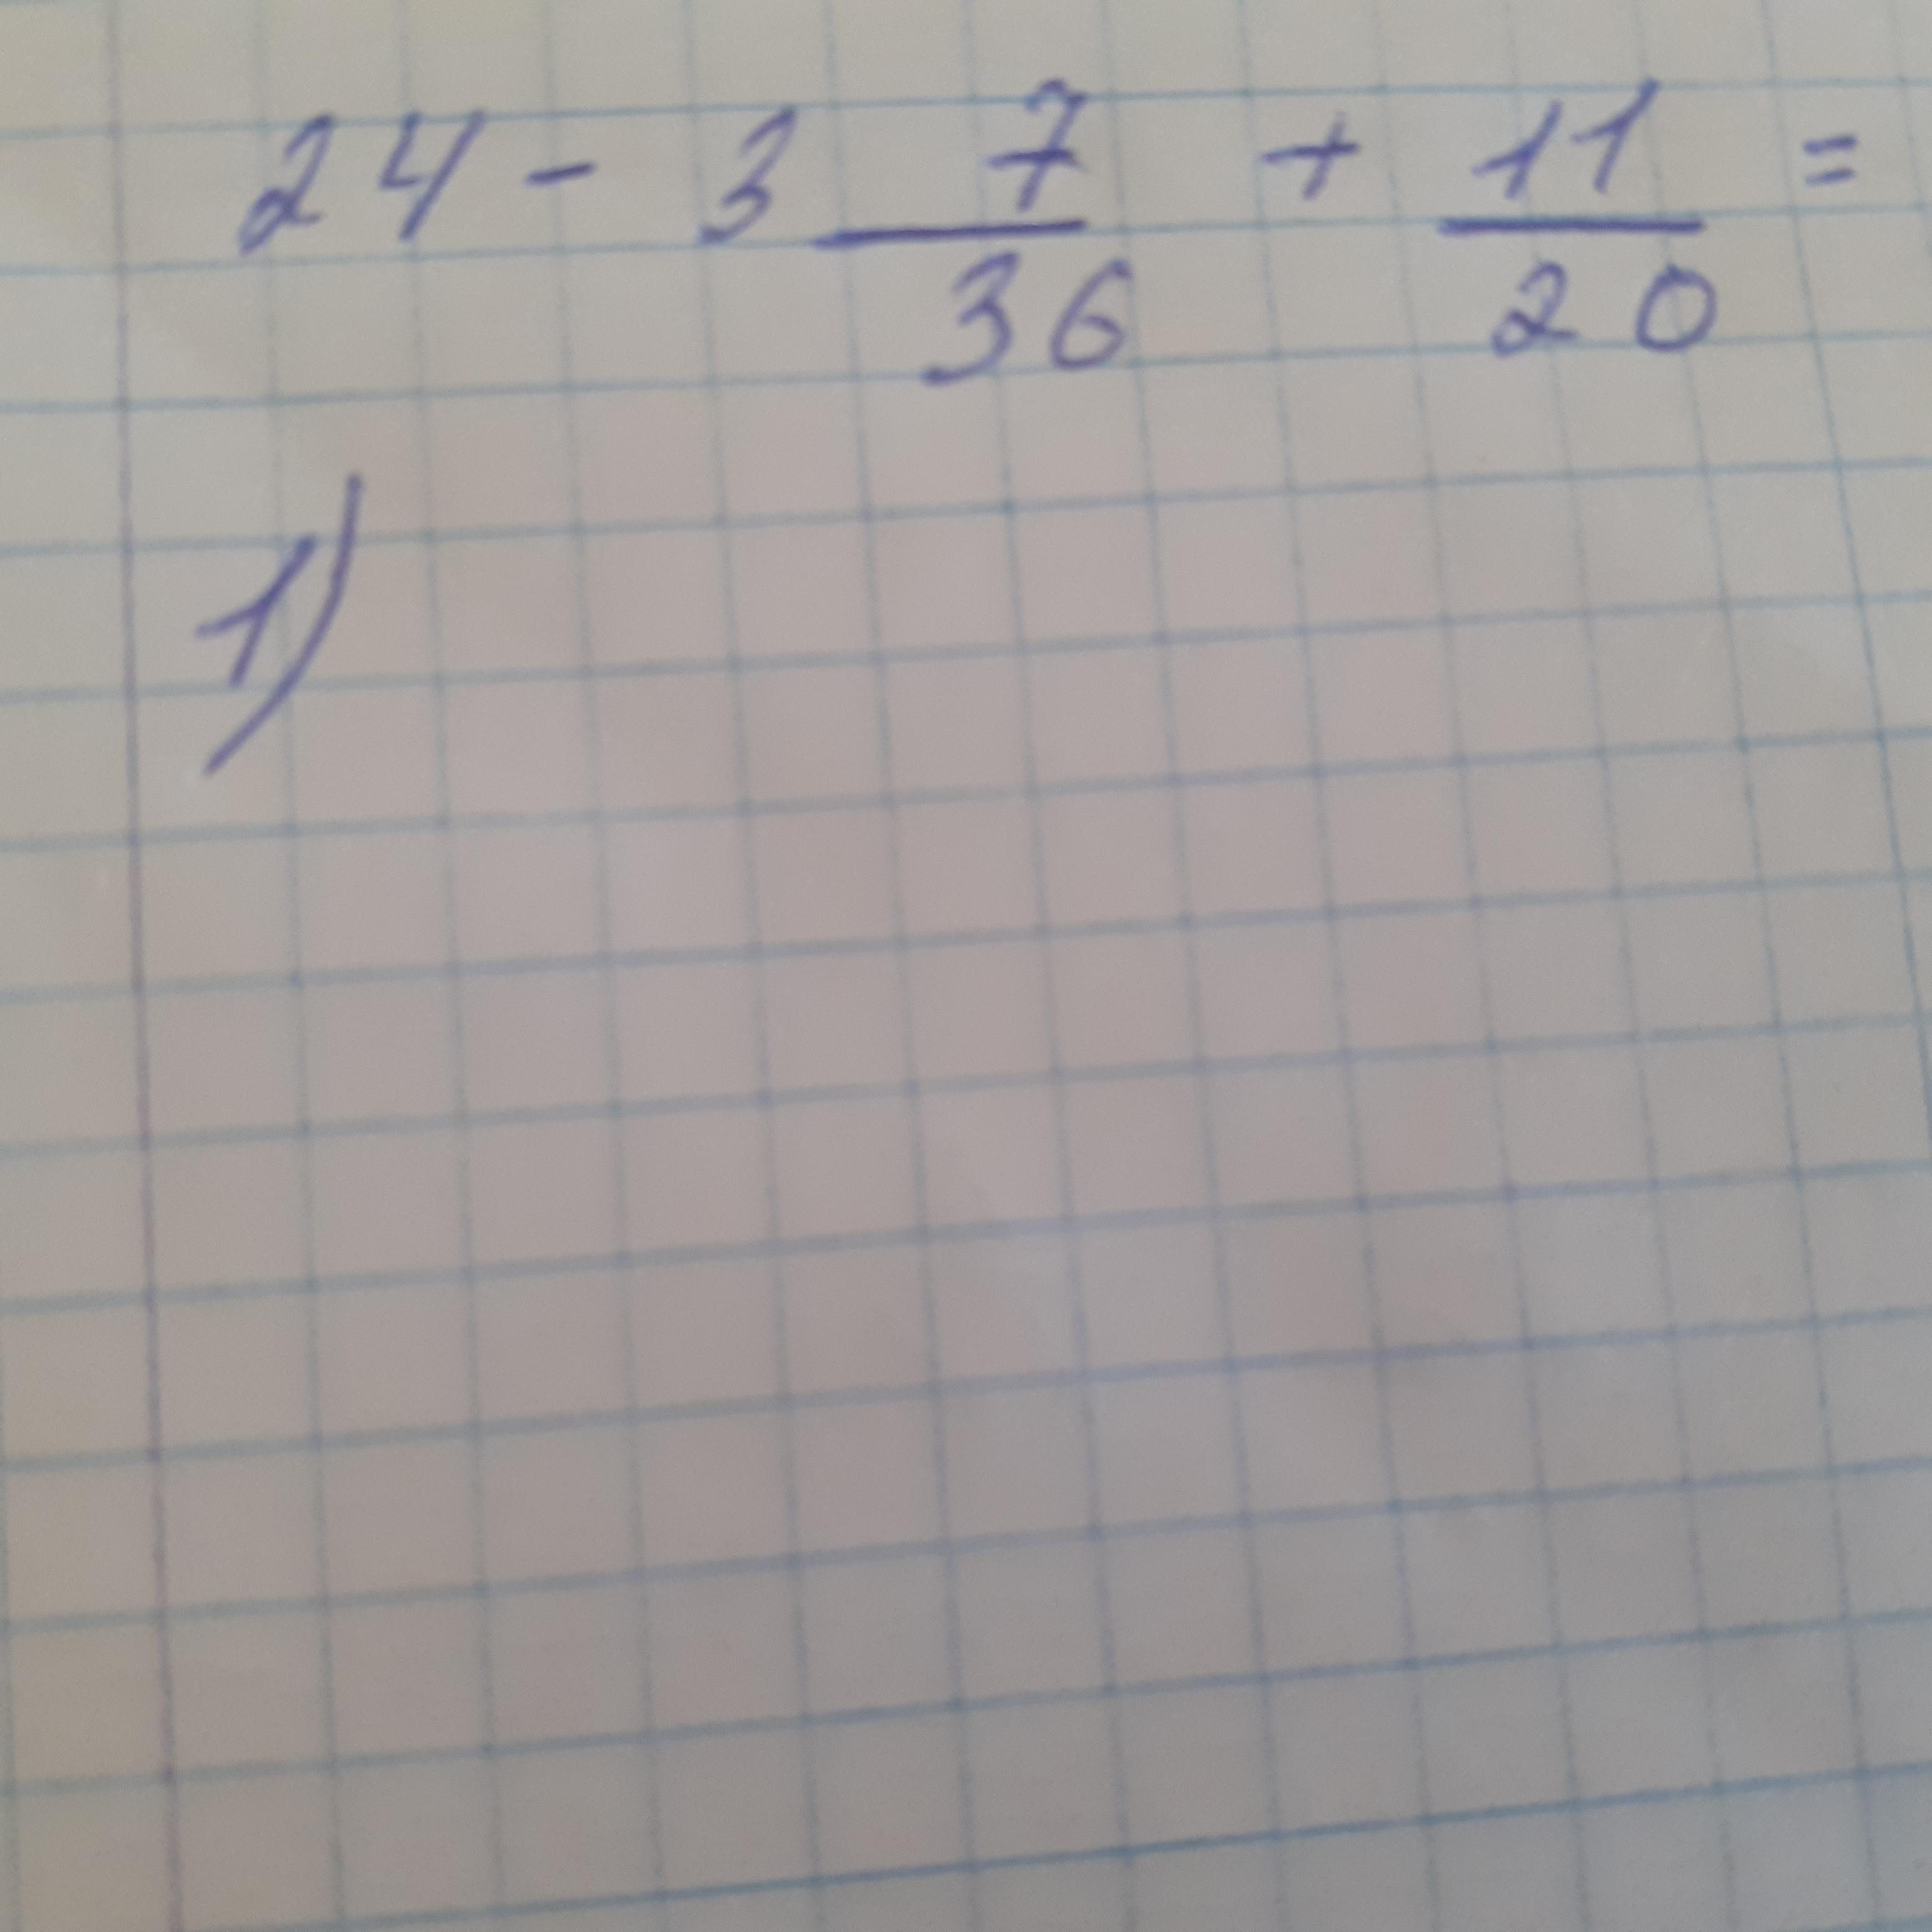 24 - 3 7/36 + 11/20 =
1)